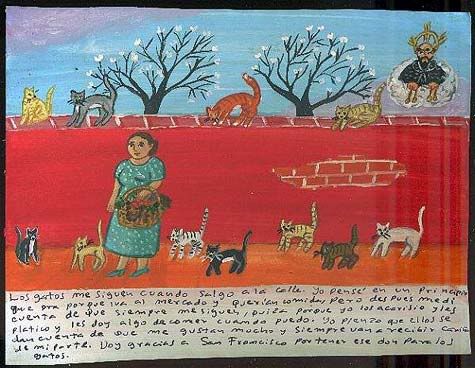 Los gatos me siguen cuando salgo a la calle. Yo pensé en un principio
que era porque iva al mercado y querían comida, pero despues me di
cuenta de que siempre me siguen, quiza porque yo los acarisio y les
platico y les doy algo de comer cuando puedo. Yo pienzo que ellos se
dan cuenta de que me gustan mucho y siempre van a recibir cariño
de mi parte. Doy gracias a San Francisco por tener ese don para los
gatos.